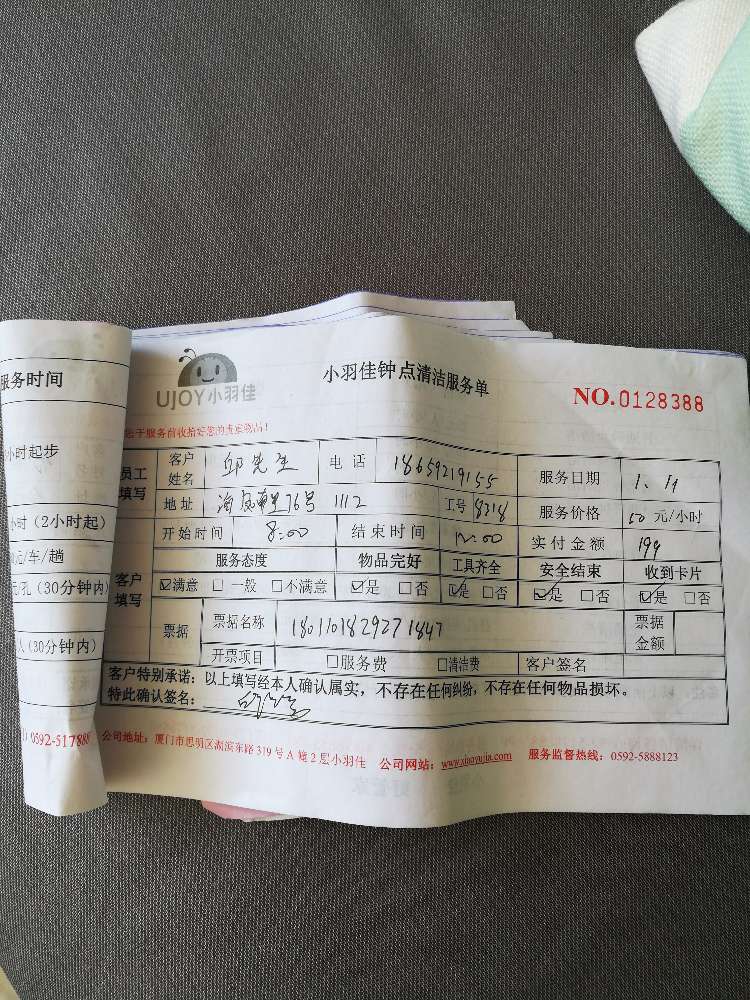 服务时间
小时起步
小时（2小时起）
元/车/趟
元/孔（30分钟内）
人（30分钟内）
0592-517888
UJOY小羽佳
小羽佳钟点清洁服务单
NO.0128388
您于服务前收拾好您的贵重物品！
员工填写
客户姓名 邱先生 电话 18659219155 服务日期 1.11
地址 76号 1112 工号 8318 服务价格 50 元/小时
开始时间 8:00 结束时间 12:00 实付金额 199
客户填写
服务态度 物品完好 工具齐全 安全结束 收到卡片
☑满意 □一般 □不满意 ☑是 □否 ☑是 □否 ☑是 □否 ☑是 □否
票据 票据名称 180110182927 1847 票据金额
开票项目 □服务费 □清洁费 客户签名
客户特别承诺：以上填写经本人确认属实，不存在任何纠纷，不存在任何物品损坏。
特此确认签名：
公司地址：厦门市思明区湖滨东路319号A幢2层小羽佳 公司网站：www.xiaoyujia.com 服务监督热线：0592-5888123